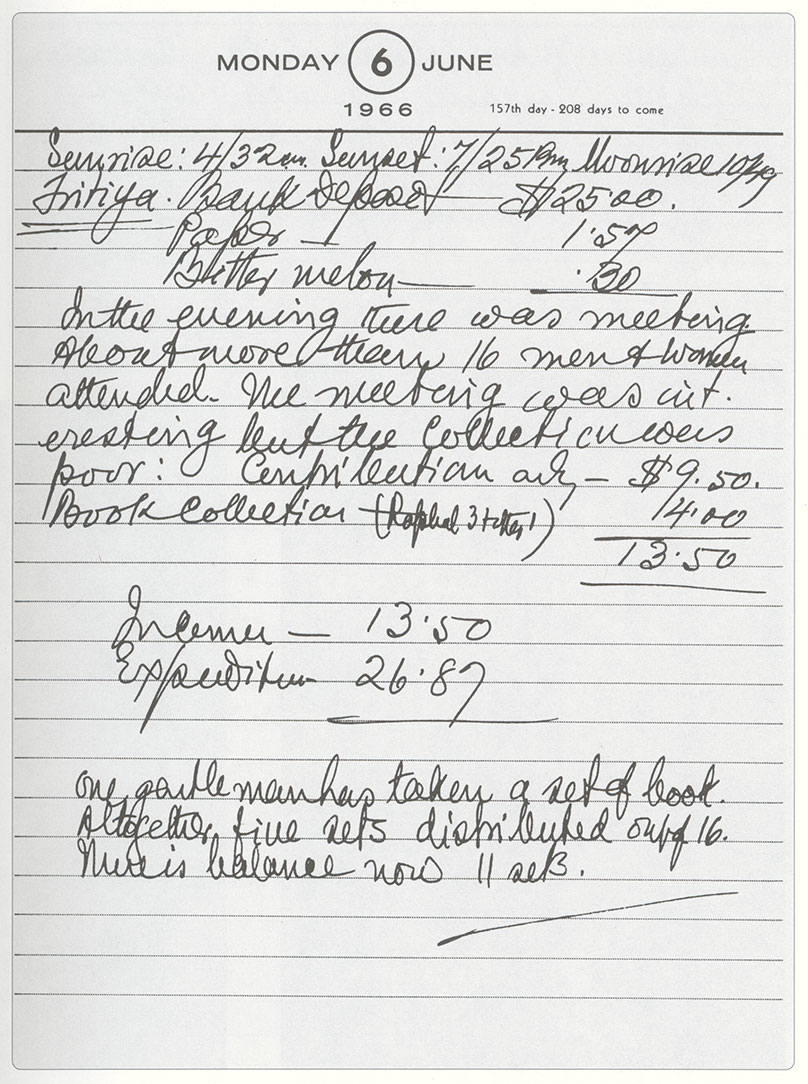 MONDAY 6 JUNE
1966 157th day - 208 days to come
Sunrise: 4/32 am. Sunset: 7/25 Pm Moonrise 10/49
Tritiya. Bank Deposit — $25.00.
Paper — 1.57
Bitter melon — .30
In the evening there was meeting.
About more than 16 men & women
attended. The meeting was int.
eresting but the collection was
poor: Contribution only — $9.50.
Book Collection — (Raphael 3 + 1) /4.00
13.50
Income — 13.50
Expenditure 26.87
one gentleman has taken a set of book.
Altogether five sets distributed out of 16.
There is balance now 11 sets.